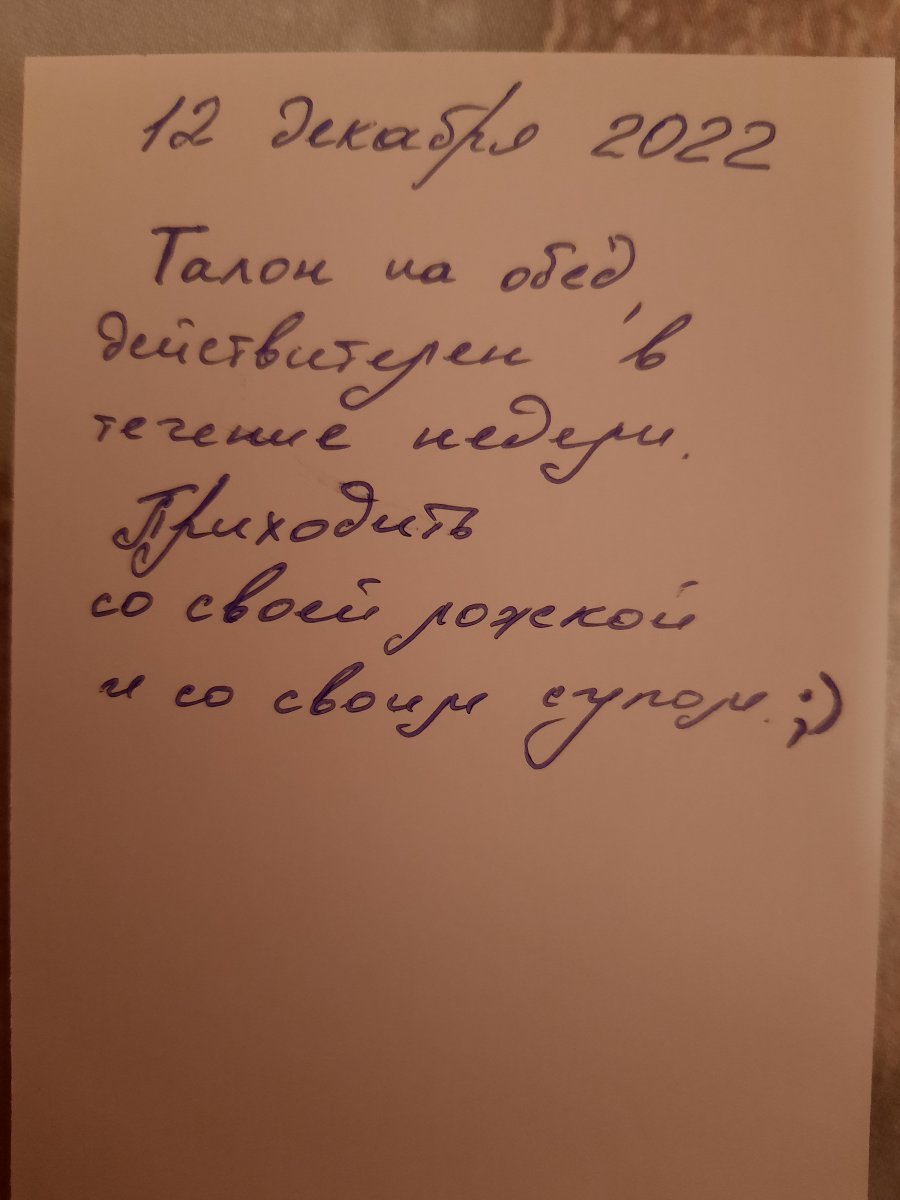 12 декабря 2022
Талон на обед
действителен в
течение недели.
Приходить
со своей ложкой
и со своим супом. ;)